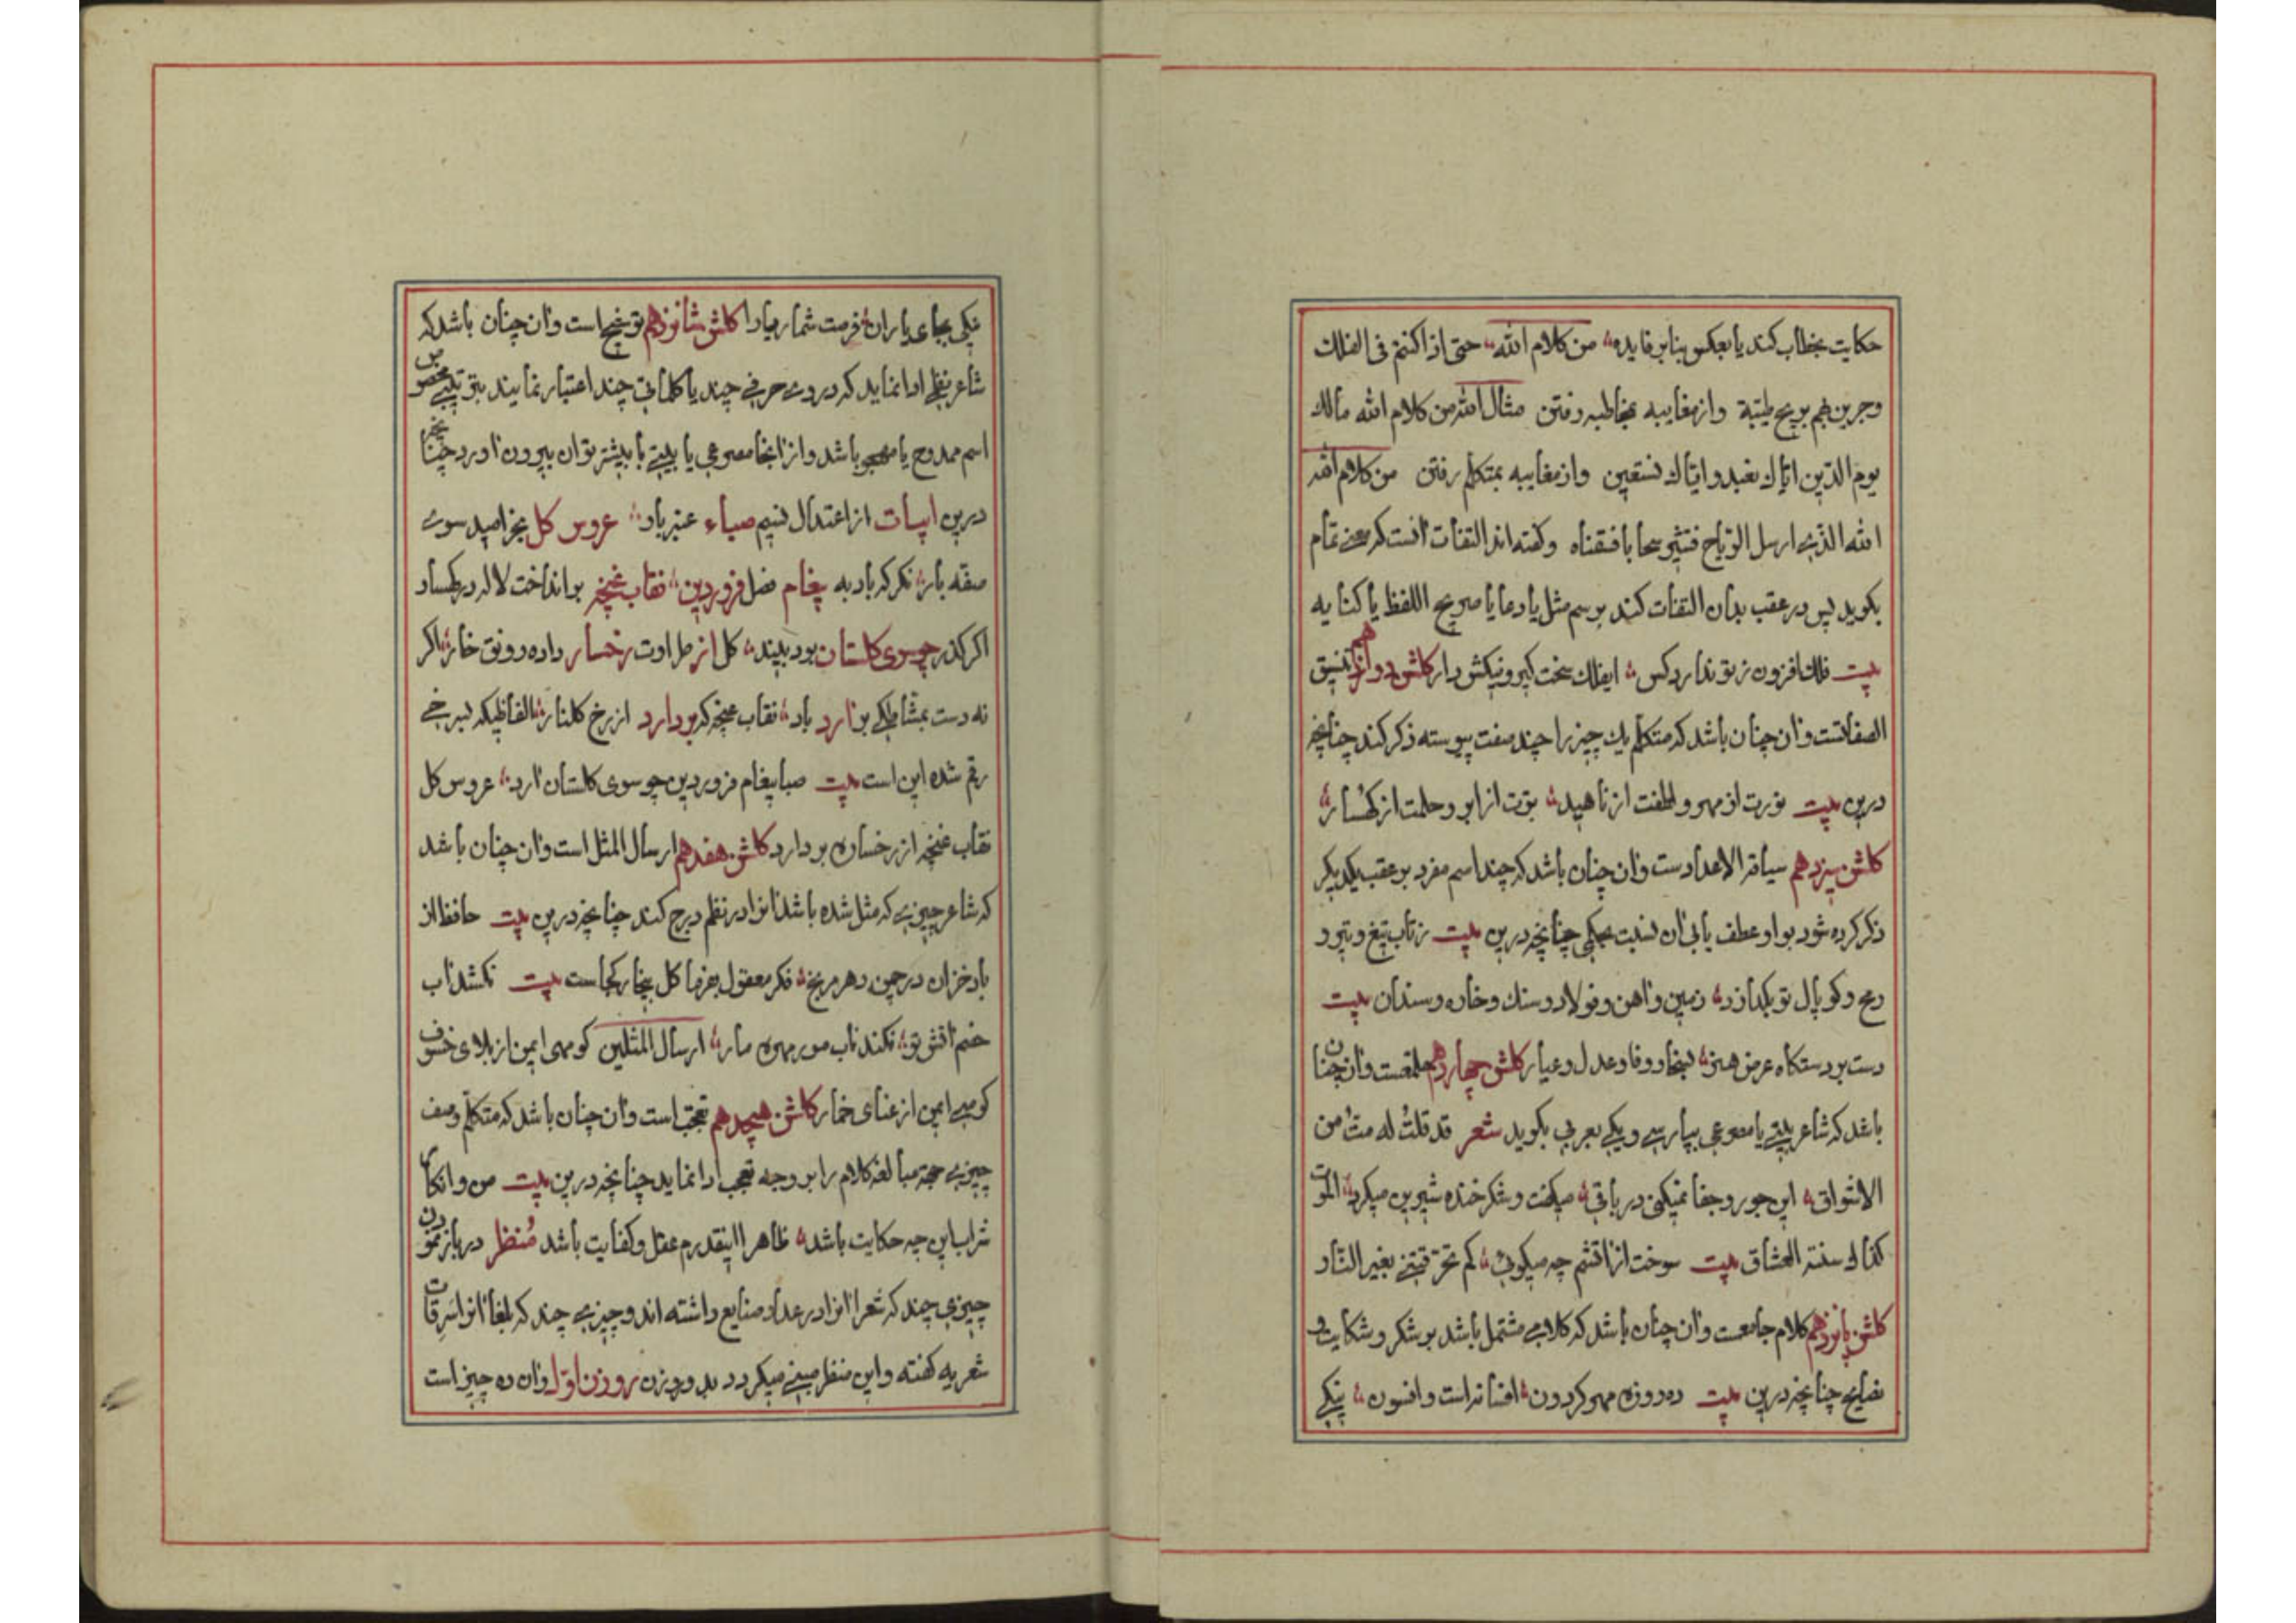 حکایت بخطاب کند یا بعکس بنابر فایده من کلام الله حتی اذا کنتم فی الفلك
وجرین بهم بریح طیّبة وازمغایبه بمخاطبه رفتن مثال آخر من کلام الله مالك
یوم الدّین ایّاك نعبد وایّاك نستعین وازمغایبه بمتکلم رفتن من کلام الله
الله الّذی ارسل الرّیاح فتثیر سحابا فسقناه وکفته اند التفات آنست که سخن تمام
بکوید پس درعقب بدان التفات کند برسم مثل یا دعا یا صریح اللفظ یا کنایه
بیت فلك افزون زتو ندارد کس ایفلك سخت کیر ونیکش دار کلشن دوازدهم تنسیق
الصفاتست وآن چنان باشد که متکلم یك چیز را چند صفت پیوسته ذکر کند چنانچه
درین بیت نورت از مهر ولطفت از ناهید برّت از ابر وحلمت از کهسار
کلشن سیزدهم سیاقة الاعدادست وآن چنان باشد که چند اسم مفرد برعقب یکدیکر
ذکر کرده شود بواو عطف یا بی آن نسبت بیکی چنانچه درین بیت زتاب تیغ وتیر و
رمح وکوپال تو بکدازد زمین وآهن وفولاد وسنك وخاره وسندان بیت
دست برد ستکاه عرض هنر بسخا ووفا وعدل وعیار کلشن چهاردهم ملمّعست وآن چنان
باشد که شاعر بیتی یا مصرعی بپارسی ویکی بعربی بکوید شعر قد قلتُ له متُ من
الاشواق این جور وجفا نمیکنی درباقی میکفت وشکر خنده شیرین میکرد الموت
کذاك سنة العشاق بیت سوخت از آتشم چه میکویی کم تحرّقتنی بغیر النّار
کلشن پانزدهم کلام جامعست وآن چنان باشد که کلامی مشتمل باشد برشکر وشکایت و
نصایح چنانچه درین بیت ده روزه مهر کردون افسانه است وافسون نیکی
نیکی بجای یاران فرصت شمار یارا کلشن شانزدهم توشیح است وآن چنان باشد که
شاعر بنظمی ادا نماید که دروی حرفی چند یا کلماتی چند اعتبار نمایند بترتیبی مخصوص
اسم ممدوح یا مهجو باشد وازآنجا مصرعی یا بیتی یا بیشتر توان بیرون آورد چنانچه
درین ابیات ازاعتدال نسیم صباء عنبر باد عروس کل بخرامید سوی
صفه بار نکر که باد به پیغام فصل فروردین نقاب غنچه برانداخت لاله درکهسار
اکر کذر چو سوی کلستان بود بیند کل از طراوت رخسار داده رونق خار اکر
نه دست بمشّاطکی برآرد باد نقاب غنچه که بردارد ازرخ کلنار الفاظیکه بسرخی
رقم شده این است بیت صبا پیغام فروردین چو سوی کلستان آرد عروس کل
نقاب غنچه از رخساره بردارد کلشن هفدهم ارسال المثل است وآن چنان باشد
که شاعر چیزی که مثل شده باشد آنرا درنظم درج کند چنانچه درین بیت حافظ از
باد خزان درچمن دهر مرنج فکر معقول بفرما کل بیخار کجاست بیت نکشد آب
خصم آتش تو نکند تاب مور مهره مار ارسال المثلین کو مهی ایمن از بلای خسوف
کو میی ایمن ازعنای خمار کلشن هیجدهم تعجّب است وآن چنان باشد که متکلّم وصف
چیزی بجهة مبالغه کلام را بر وجه تعجب ادا نماید چنانچه درین بیت من وانکار
شراب این چه حکایت باشد ظاهرا اینقدرم عقل وکفایت باشد مُنظر درباز نمودن
چیزی چند که شعرا آنرا درعداد صنایع داشته اند وچیزی چند که بلغا آنرا سَرِقات
شعریه کفته واین منظر مبنی میکردد بدو روزن روزن اوّل وآن ده چیز است